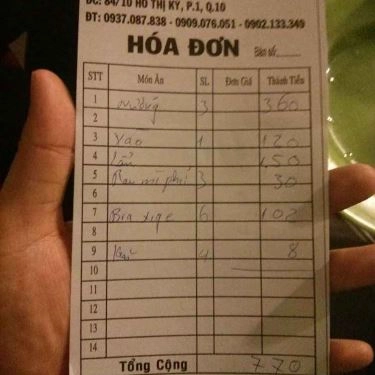 ĐC: 84/10 HỒ THỊ KỶ, P.1, Q.10
ĐT: 0937.087.838 - 0909.076.051 - 0902.133.349
HÓA ĐƠN Bàn số:
STT Món Ăn SL Đơn Giá Thành Tiền
1 nướng 3 360
2
3 Xào 1 120
4 Lẩu 150
5 Rau mì phí 3 30
6
7 Bia tige 6 102
8
9 4 8
10
11
12
13
14
Tổng Cộng 770